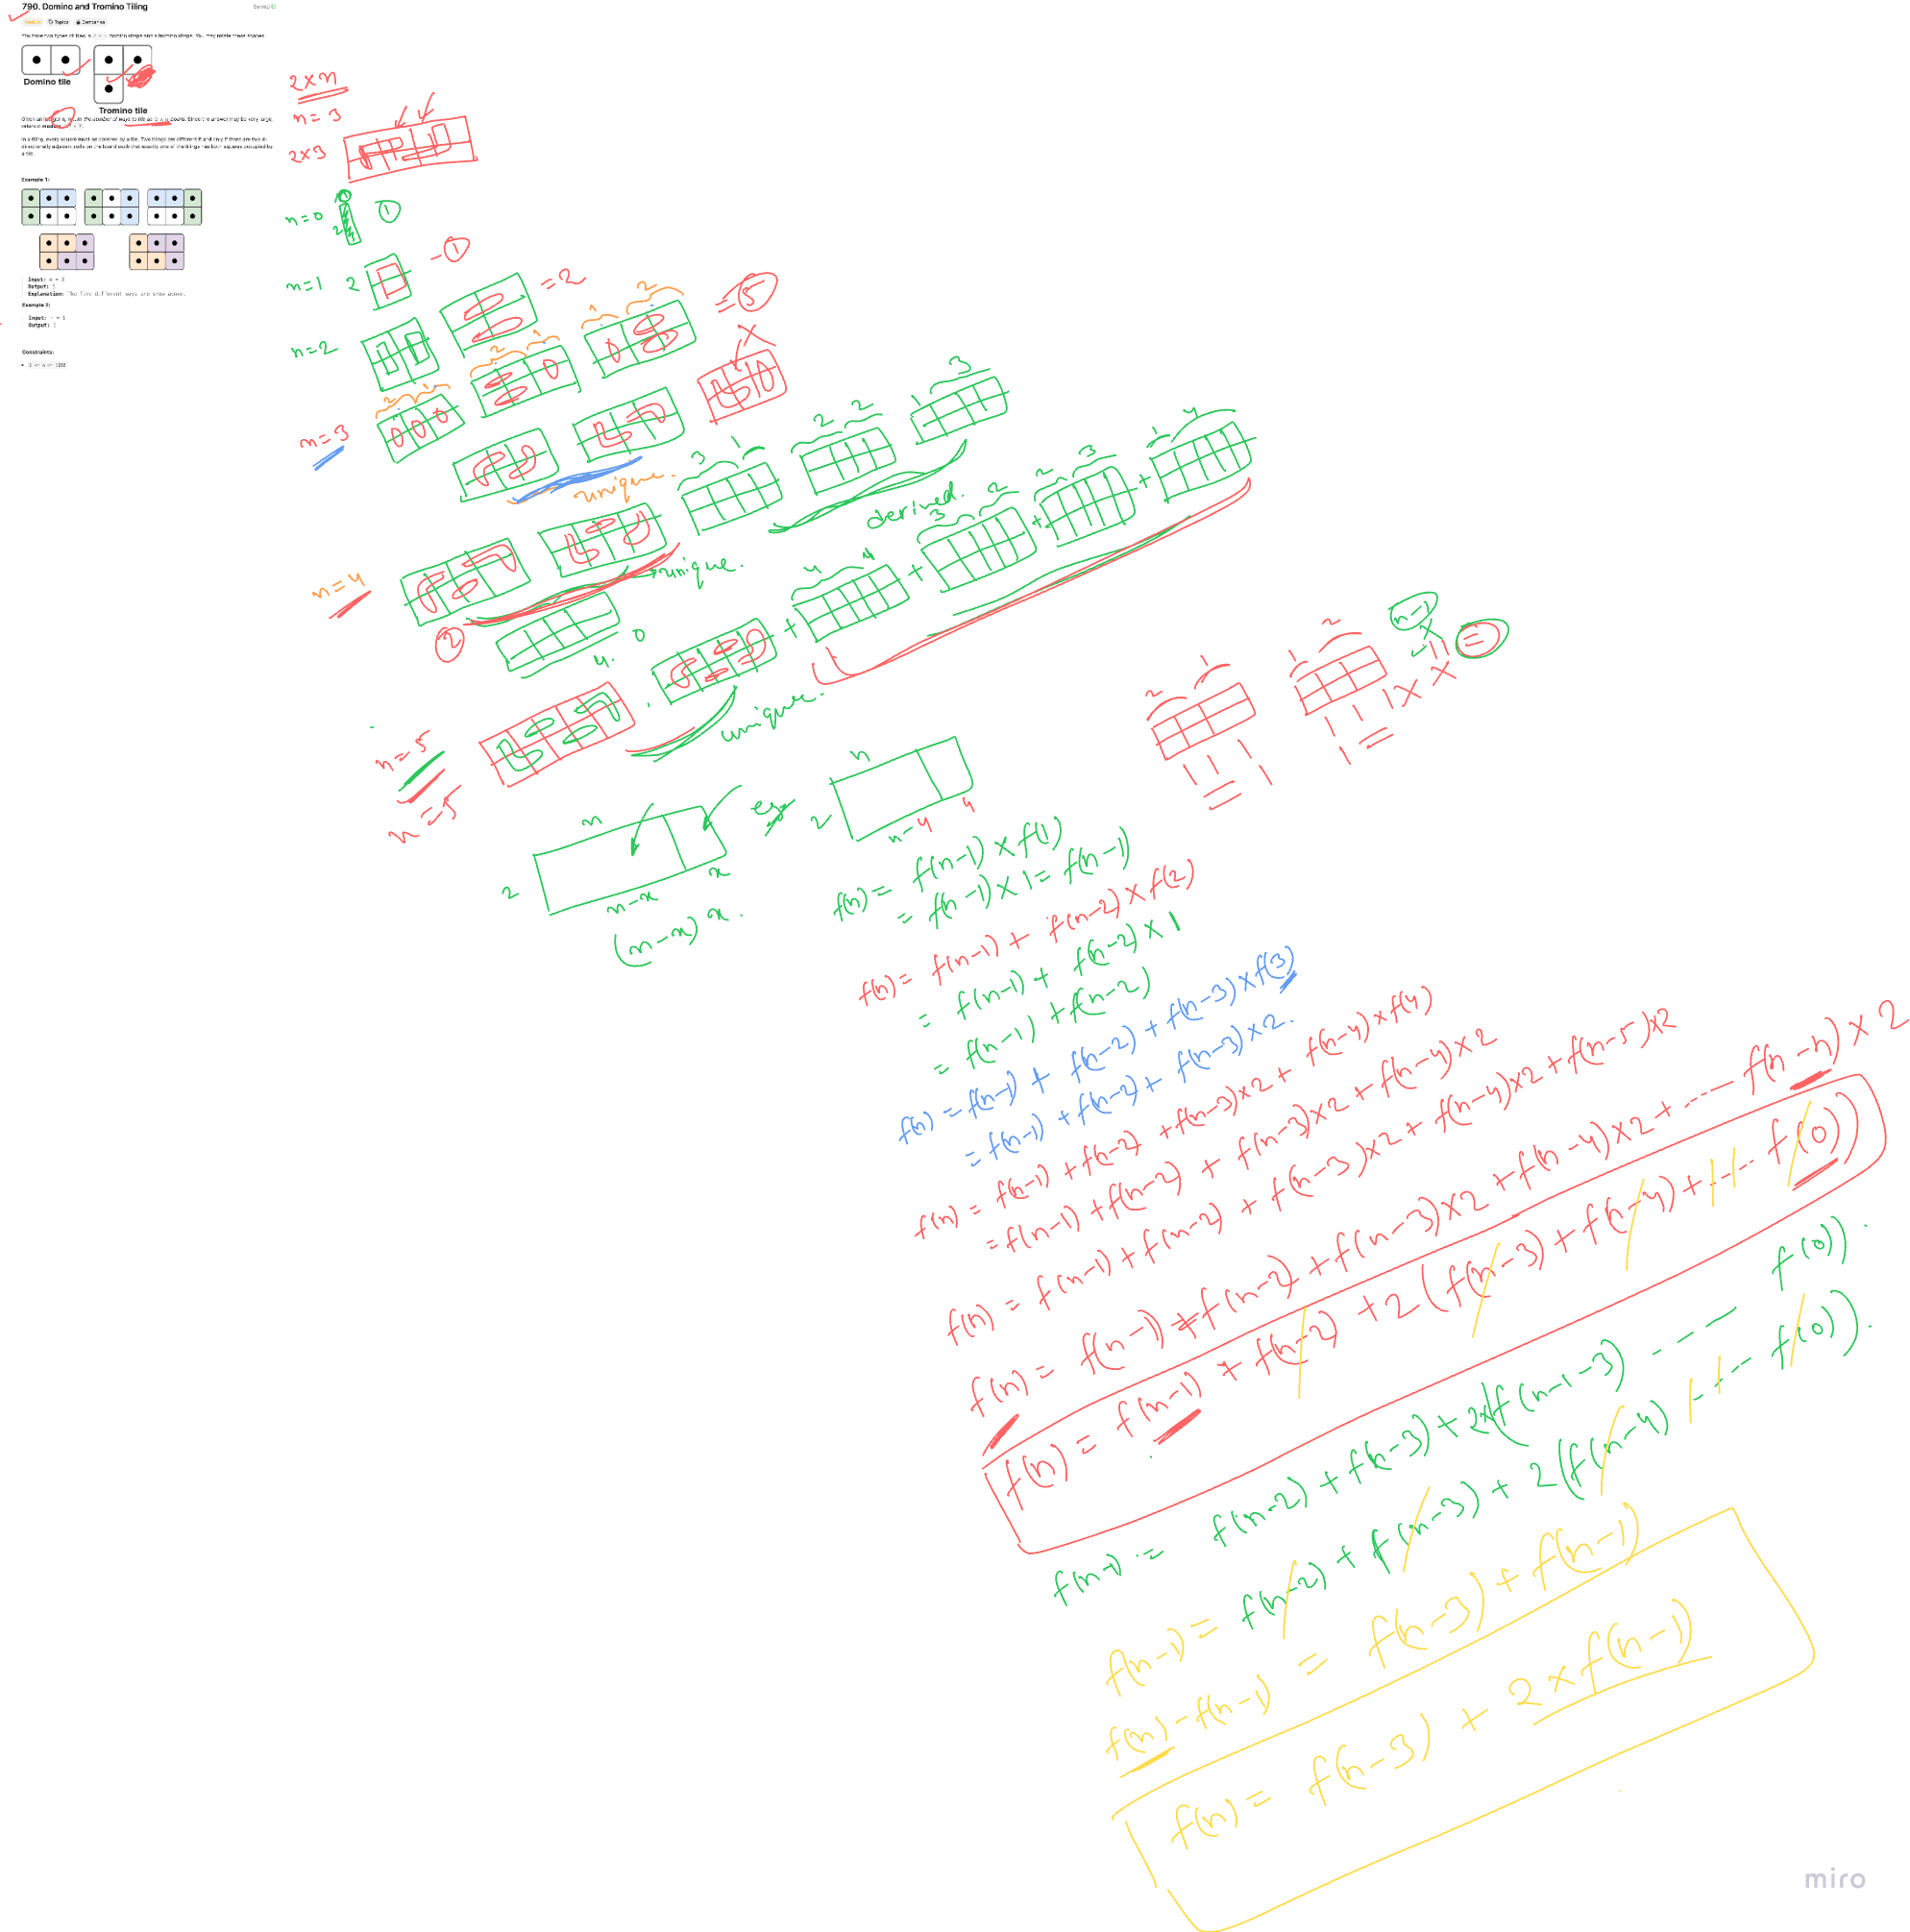 790. Domino and Tromino Tiling
Solved
Medium Topics Companies
You have two types of tiles: a 2 x 1 domino shape and a tromino shape. You may rotate these shapes.
Domino tile
Tromino tile
Given an integer n, return the number of ways to tile an 2 x n board. Since the answer may be very large,
return it modulo
In a tiling, every square must be covered by a tile. Two tilings are different if and only if there are two 4-
directionally adjacent cells on the board such that exactly one of the tilings has both squares occupied by
a tile.
Example 1:
Input: n = 3
Output: 5
Explanation: The five different ways are show above.
Example 2:
Input: n = 1
Output: 1
Constraints:
1 <= n <= 1000
2×n
n=3
2×3
n=0 2 1
n=1 2 - 1
n=2 =2
1 2 =5
2 1
2 1
n=3 X
unique.
3 1
2 2
1 3
derived.
n=4
unique.
2
4 0
n=5
unique.
4 + 3 2 + 2 3 + 1 4
n=5
2 1
1 2
n-1
n
2
n-x x
(n-x) x.
eg
n
2
n-4 4
f(n) = f(n-1) × f(1)
= f(n-1) × 1 = f(n-1)
f(n) = f(n-1) + f(n-2) × f(2)
= f(n-1) + f(n-2) × 1
= f(n-1) + f(n-2)
f(n) = f(n-1) + f(n-2) + f(n-3) × f(3)
= f(n-1) + f(n-2) + f(n-3) × 2.
f(n) = f(n-1) + f(n-2) + f(n-3)×2 + f(n-4) × f(4)
= f(n-1) + f(n-2) + f(n-3)×2 + f(n-4)×2
f(n) = f(n-1) + f(n-2) + f(n-3)×2 + f(n-4)×2 + f(n-5)×2
f(n) = f(n-1) + f(n-2) + f(n-3)×2 + f(n-4)×2 + ---- f(n-n) × 2
f(n) = f(n-1) + f(n-2) + 2(f(n-3) + f(n-4) + ---- f(0))
f(n-1) = f(n-2) + f(n-3) + 2×(f(n-1-3) ---- f(0)).
f(n-1) = f(n-2) + f(n-3) + 2(f(n-4) ---- f(0)).
f(n) - f(n-1) = f(n-3) + f(n-1)
f(n) = f(n-3) + 2×f(n-1)
miro